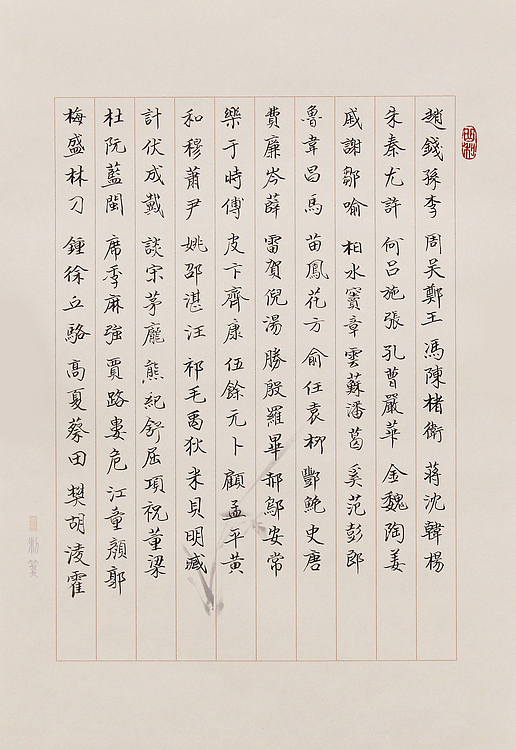 趙錢孫李 周吳鄭王 馮陳楮衛 蔣沈韓楊
朱秦尤許 何呂施張 孔曹嚴華 金魏陶姜
戚謝鄒喻 柏水竇章 雲蘇潘葛 奚范彭郎
魯韋昌馬 苗鳳花方 俞任袁柳 酆鮑史唐
費廉岑薛 雷賀倪湯 滕殷羅畢 郝鄔安常
樂于時傅 皮卞齊康 伍餘元卜 顧孟平黃
和穆蕭尹 姚邵湛汪 祁毛禹狄 米貝明臧
計伏成戴 談宋茅龐 熊紀舒屈 項祝董梁
杜阮藍閩 席季麻強 賈路婁危 江童顏郭
梅盛林刁 鍾徐丘駱 高夏蔡田 樊胡淩霍